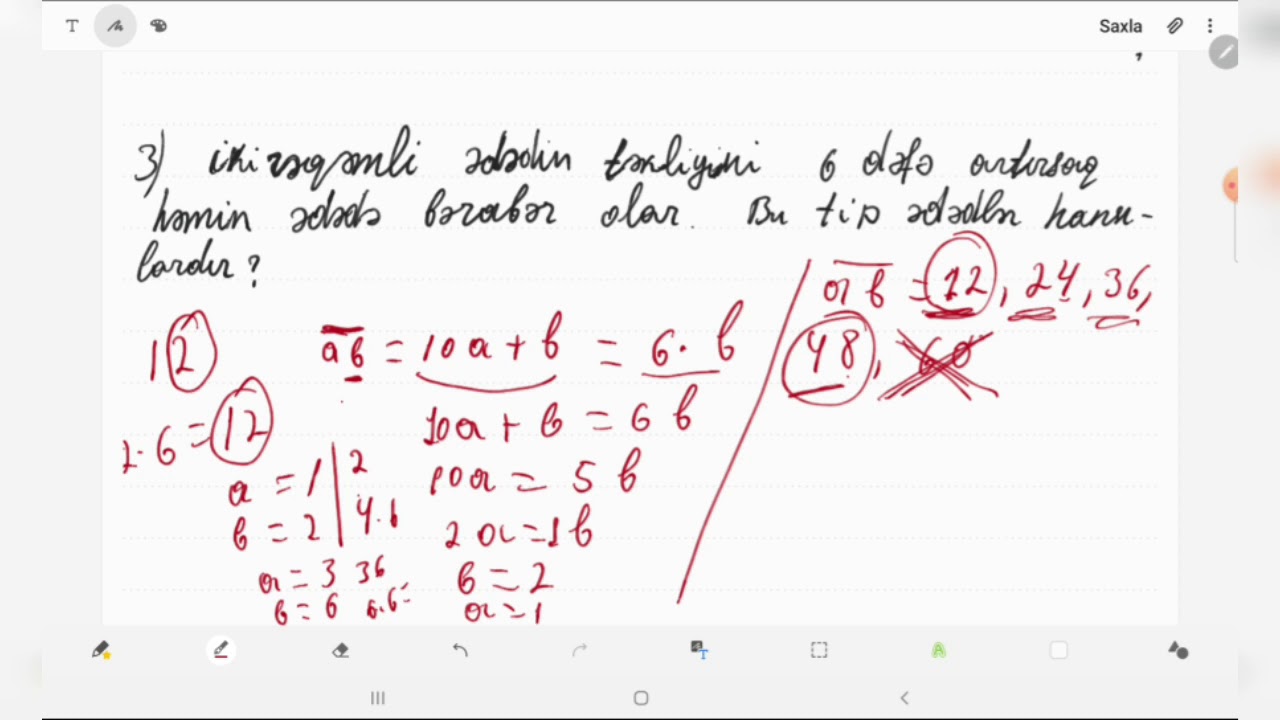 T Saxla
3) ikirəqəmli ədədin təkliyini 6 dəfə artırsaq
həmin ədədə bərabər olar. Bu tip ədədlər hansı-
lardır?
12
2·6=12
ab = 10a + b = 6·b
10a + b = 6b
10a = 5b
2a=1b
b=2
a=1
a=1 | 2
b=2 | 4·6
a=3 36
b=6 6·6=
ab =12, 24, 36,
48, 60
T
A